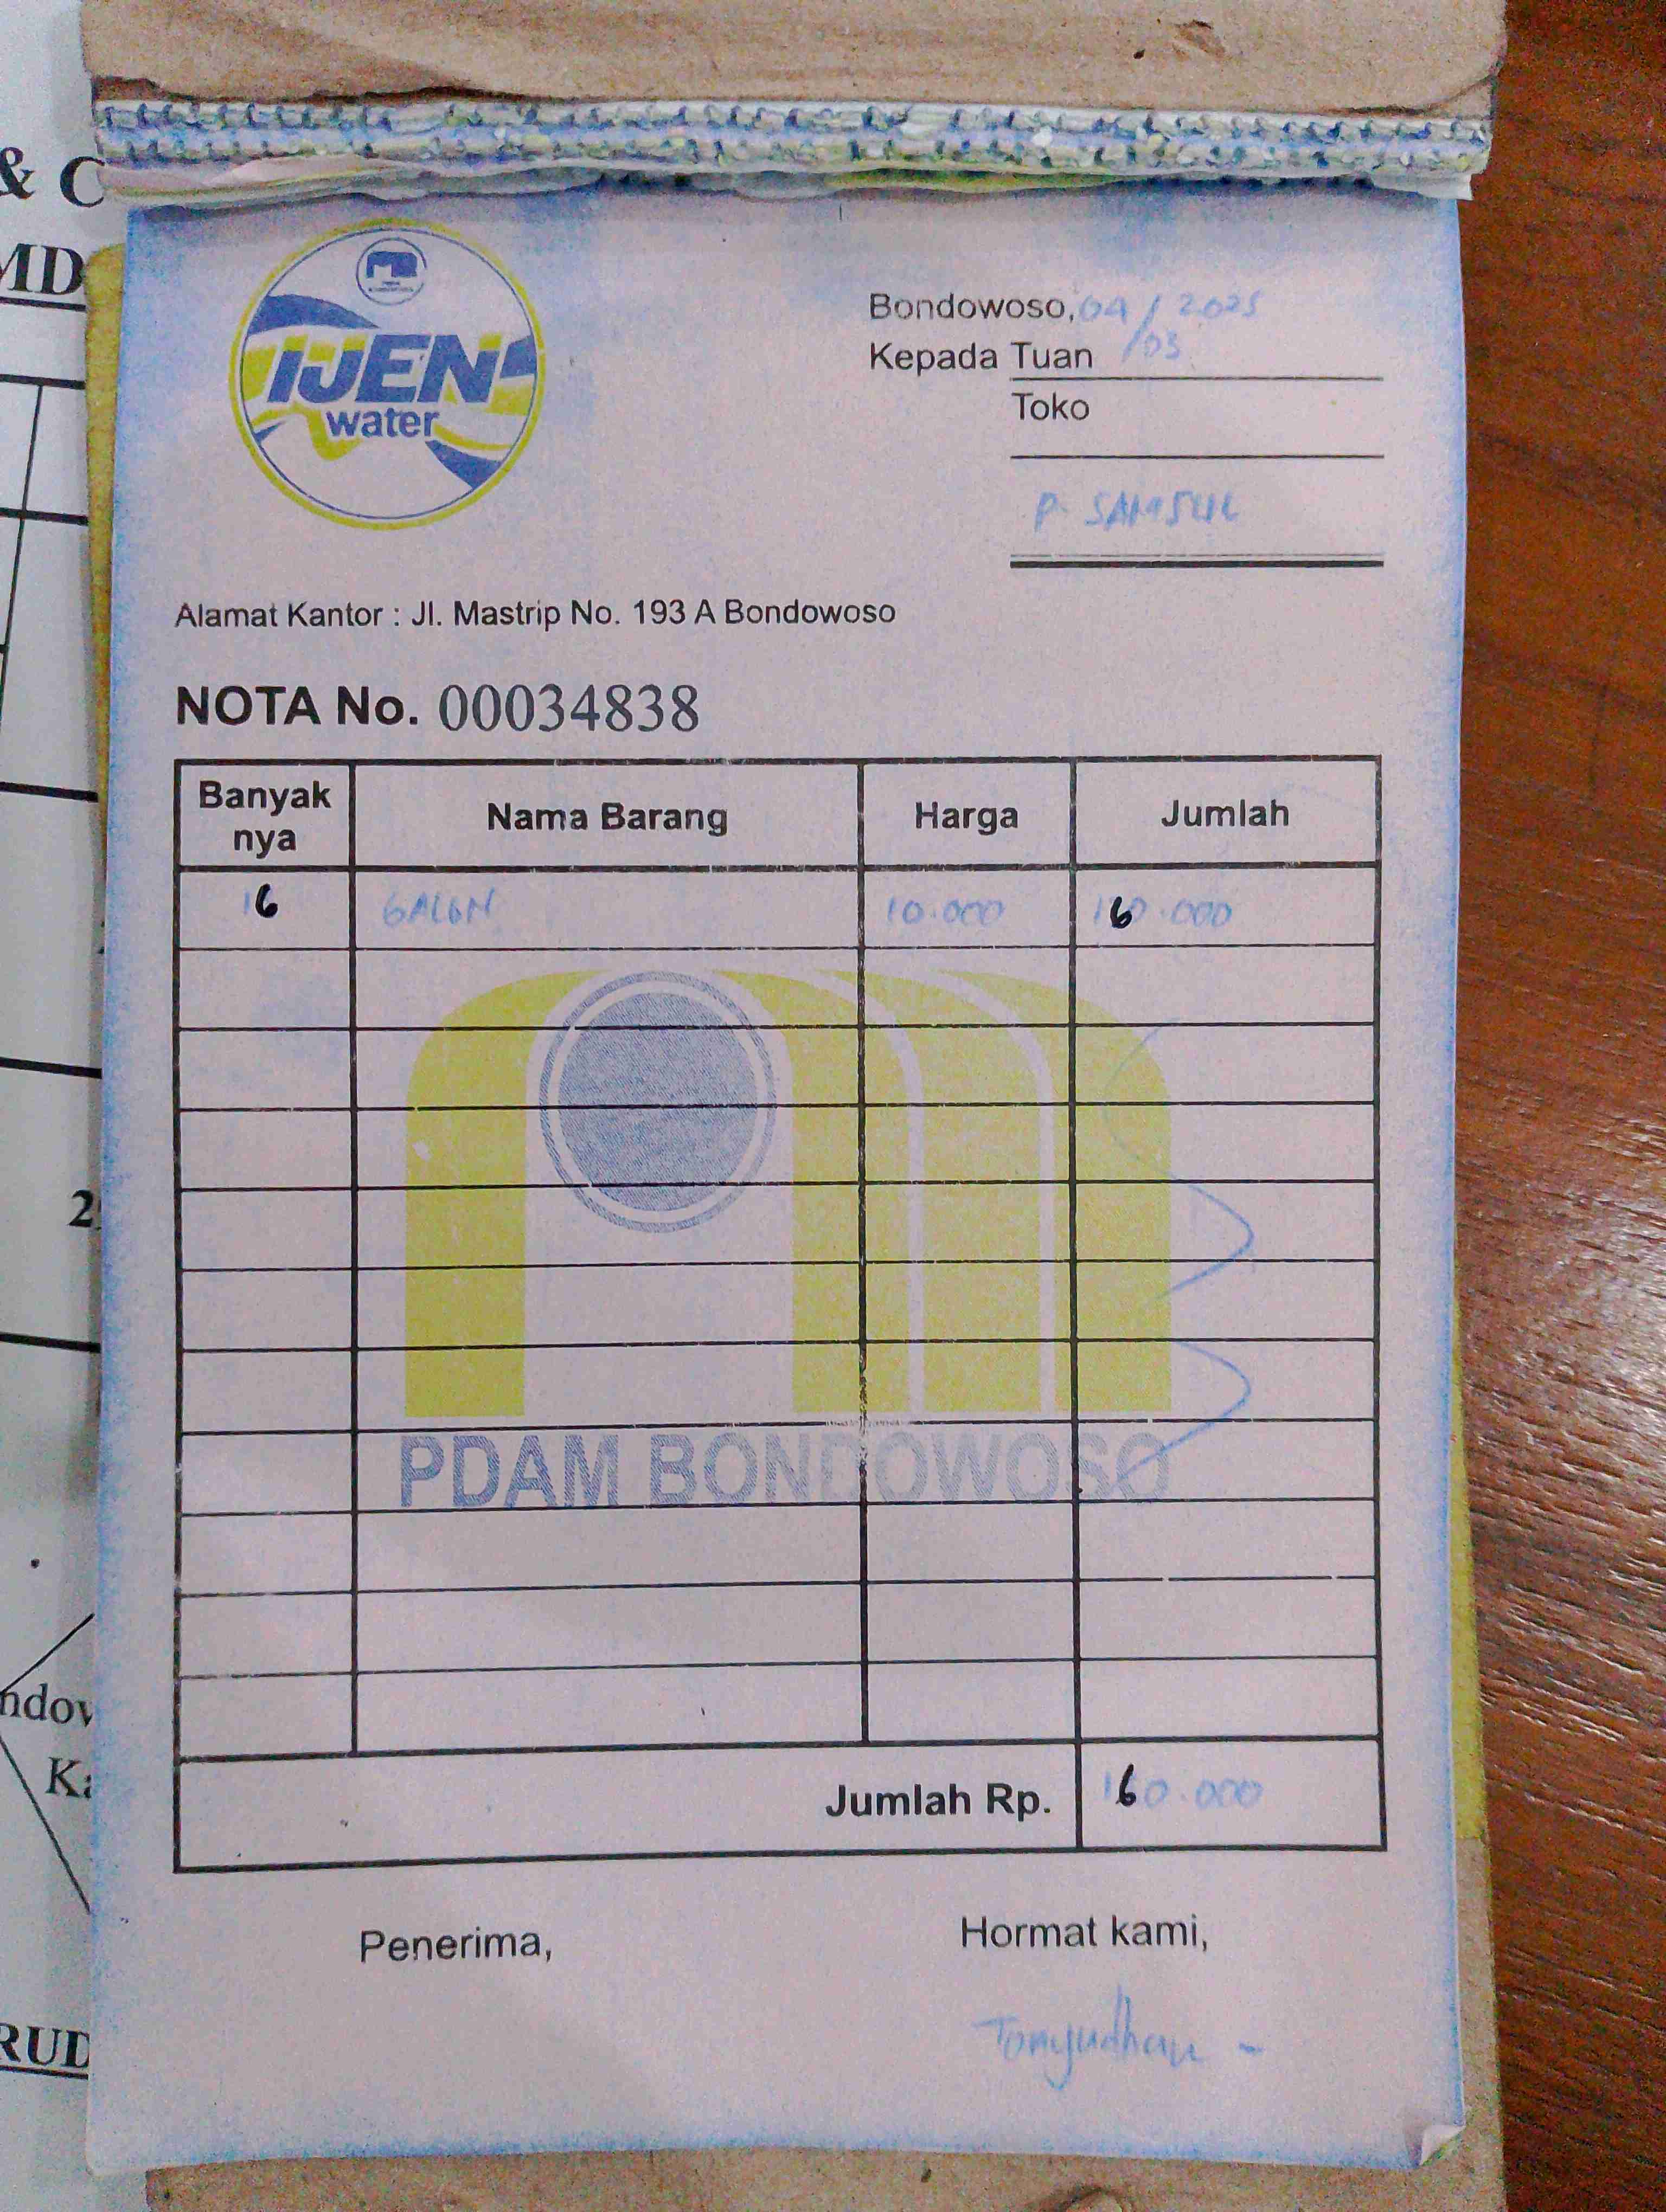 & C
MD
IJEN
water
Bondowoso, 04/03 2025
Kepada Tuan
Toko
P. SAMSUL
Alamat Kantor : Jl. Mastrip No. 193 A Bondowoso
NOTA No. 00034838
Banyak nya Nama Barang Harga Jumlah
16 GALON 10.000 160.000
PDAM BONDOWOSO
Jumlah Rp. 160.000
Penerima, Hormat kami,
2
ndow
Ka
RUD